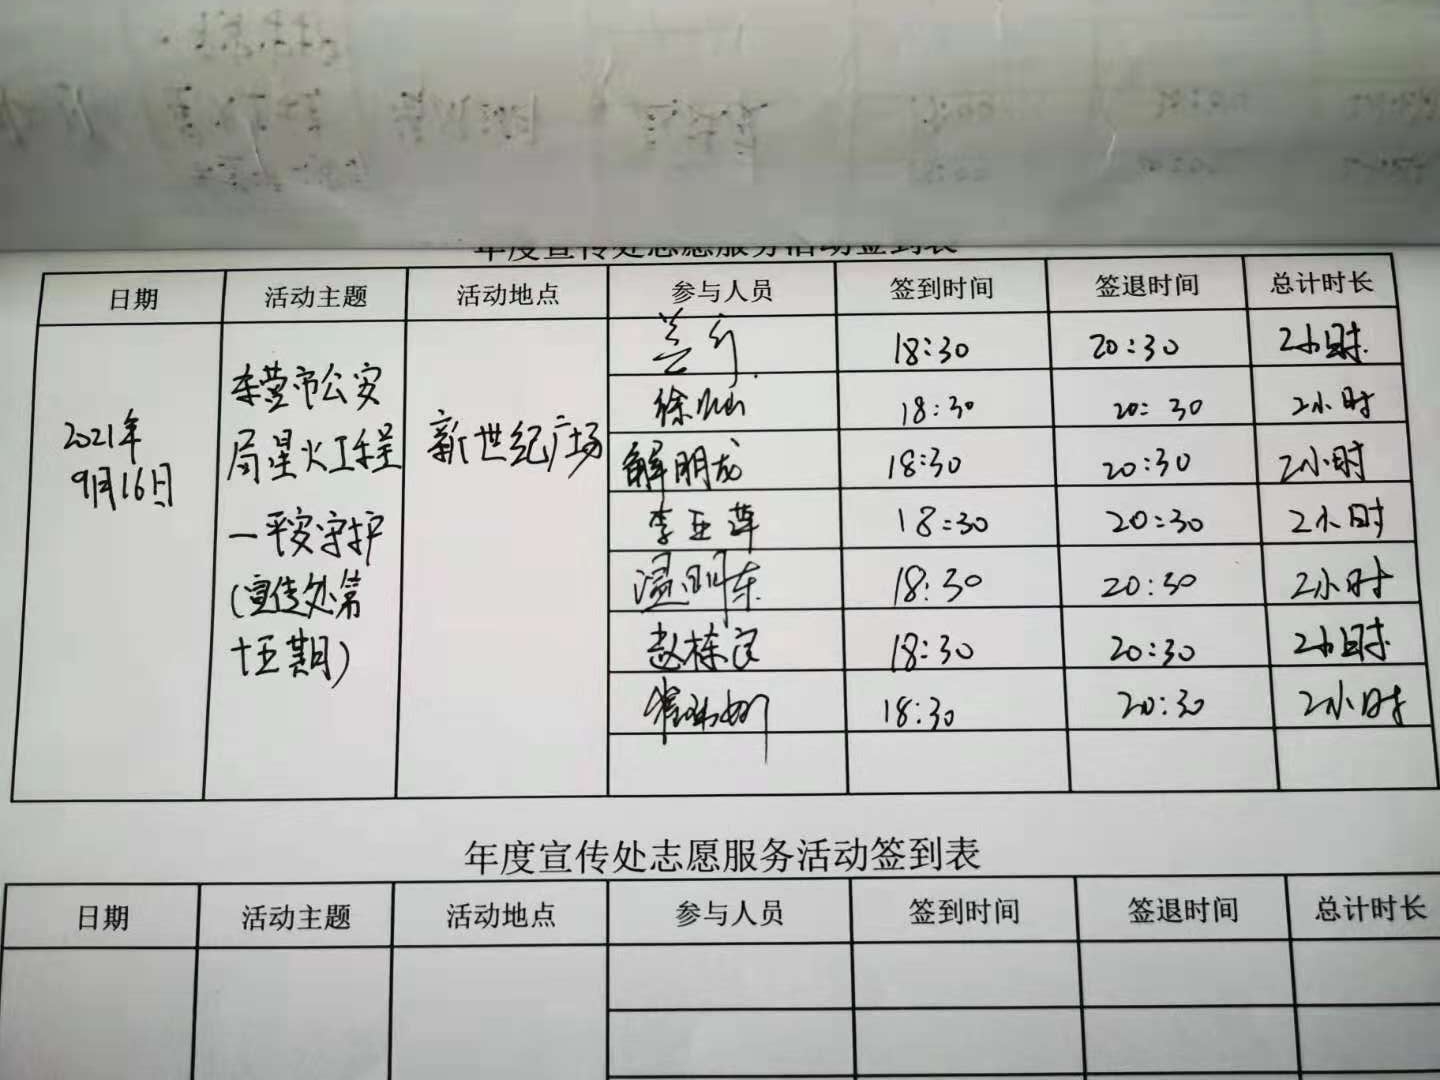 年度宣传处志愿服务活动签到表
日期 活动主题 活动地点 参与人员 签到时间 签退时间 总计时长
2021年
9月16日
东营市公安
局星火工程
一平安守护
(宣传处第
十五期)
新世纪广场
18:30 20:30 2小时
徐灿 18:30 20:30 2小时
解朋龙 18:30 20:30 2小时
李亚萍 18:30 20:30 2小时
温明东 18:30 20:30 2小时
赵栋 18:30 20:30 2小时
18:30 20:30 2小时
年度宣传处志愿服务活动签到表
日期 活动主题 活动地点 参与人员 签到时间 签退时间 总计时长